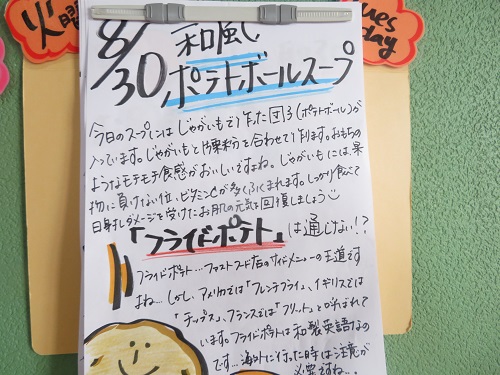 火曜
Tuesday
8/30 和風
ポテトボールスープ
今日のスープには じゃがいもで作った団子(ポテトボール)が
入っています。じゃがいもと片栗粉を合わせて作ります。おもちの
ようなモチモチ食感がおいしいですよね。じゃがいもには、果
物に負けない位、ビタミンCが多くふくまれます。しっかり食べて
日射しダメージを受けたお肌の元気を回復しましょう
「フライドポテト」は通じない!?
フライドポテト…ファストフード店のサイドメニューの王道です
よね…しかし、アメリカでは「フレンチフライ」、イギリスでは
「チップス」、フランスでは「フリット」とよばれて
います。フライドポテトは和製英語なの
です…海外に行った時は注意が
必要ですね…。